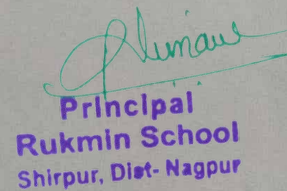 Principal
Rukmin School
Shirpur, Dist- Nagpur